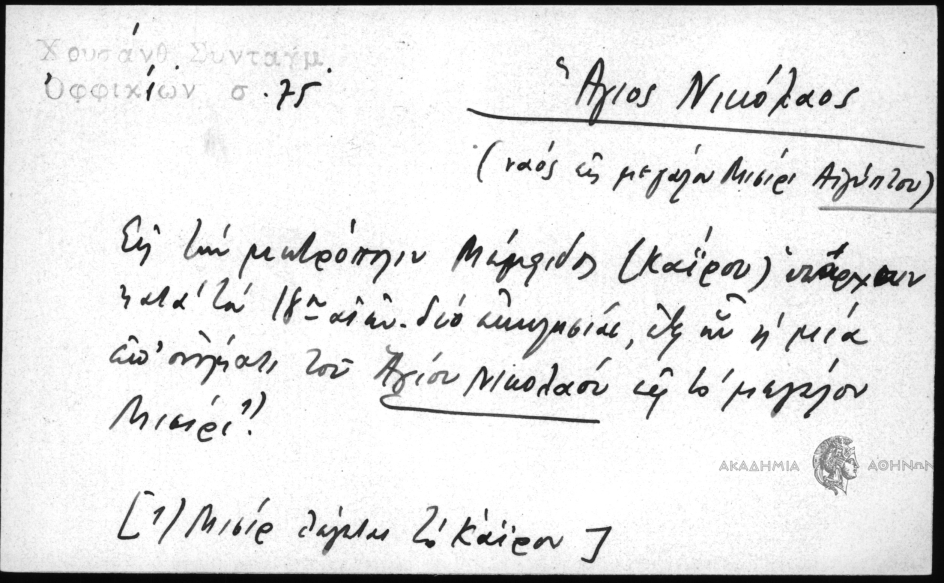 Χρυσάνθ. Συνταγμ.
Ὀφφικίων σ. 75
Ἅγιος Νικόλαος
(ναός εἰς μεγάλον Μισίρι Αἰγύπτου)
Εἰς τὴν μητρόπολιν Μέμφιδος (Καΐρου) ὑπάρχουν
κατὰ τὸν 18ον αἰῶν. δύο ἐκκλησίαι, ἐξ ὧν ἡ μία
ἐπ' ὀνόματι τοῦ Ἁγίου Νικολάου εἰς τὸ μεγάλον
Μισίρι 1).
[1) Μισίρ λέγεται τὸ Κάϊρον]
ΑΚΑΔΗΜΙΑ ΑΘΗΝΩΝ